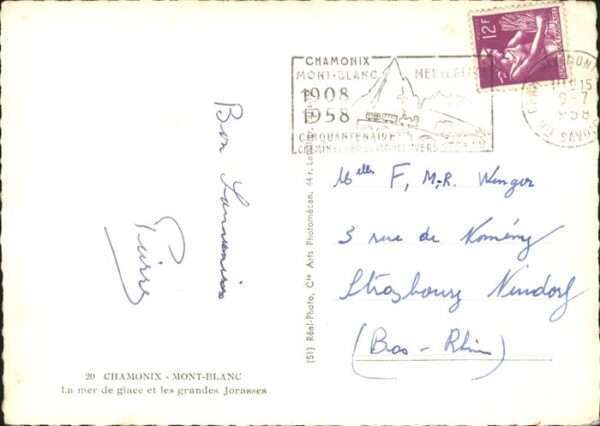 Bon Souvenir
Pierre
20 CHAMONIX - MONT-BLANC
La mer de glace et les grandes Jorasses
(51) Réal-Photo, Cte Arts Photomécan. 44 r.
CHAMONIX
MONT-BLANC
1908
1958
CINQUANTENAIRE
12F
15
9-7
1958
SAVOIE
Melles F, M.R. Wenger
3 rue de
Strasbourg Neudorf
(Bas-Rhin)